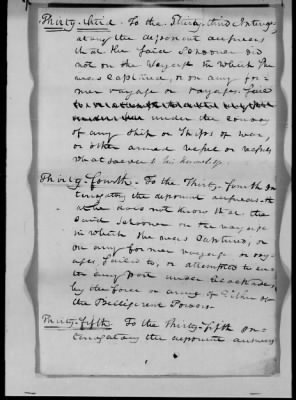 Thirty-third. To the Thirty-third Interro-
gatory the deponent answers
that the said Schooner did
not on the voyage in which she
was captured, or on any for-
mer voyage or voyages sail
under the convoy
of any Ship or Ships of war,
or other armed vessel or vessels,
what soever to his knowledge.
Thirty fourth. To the Thirty fourth In-
terrogatory the deponent answers that
he does not know that the
said schooner on the voyage
in which she was captured, or
on any former voyage or voy-
ages sailed to, or attempted to en-
ter any port under blockade
by the force or arms of either of
the Belligerent Powers.
Thirty-fifth. To the Thirty-fifth In-
terrogatory the deponent answers